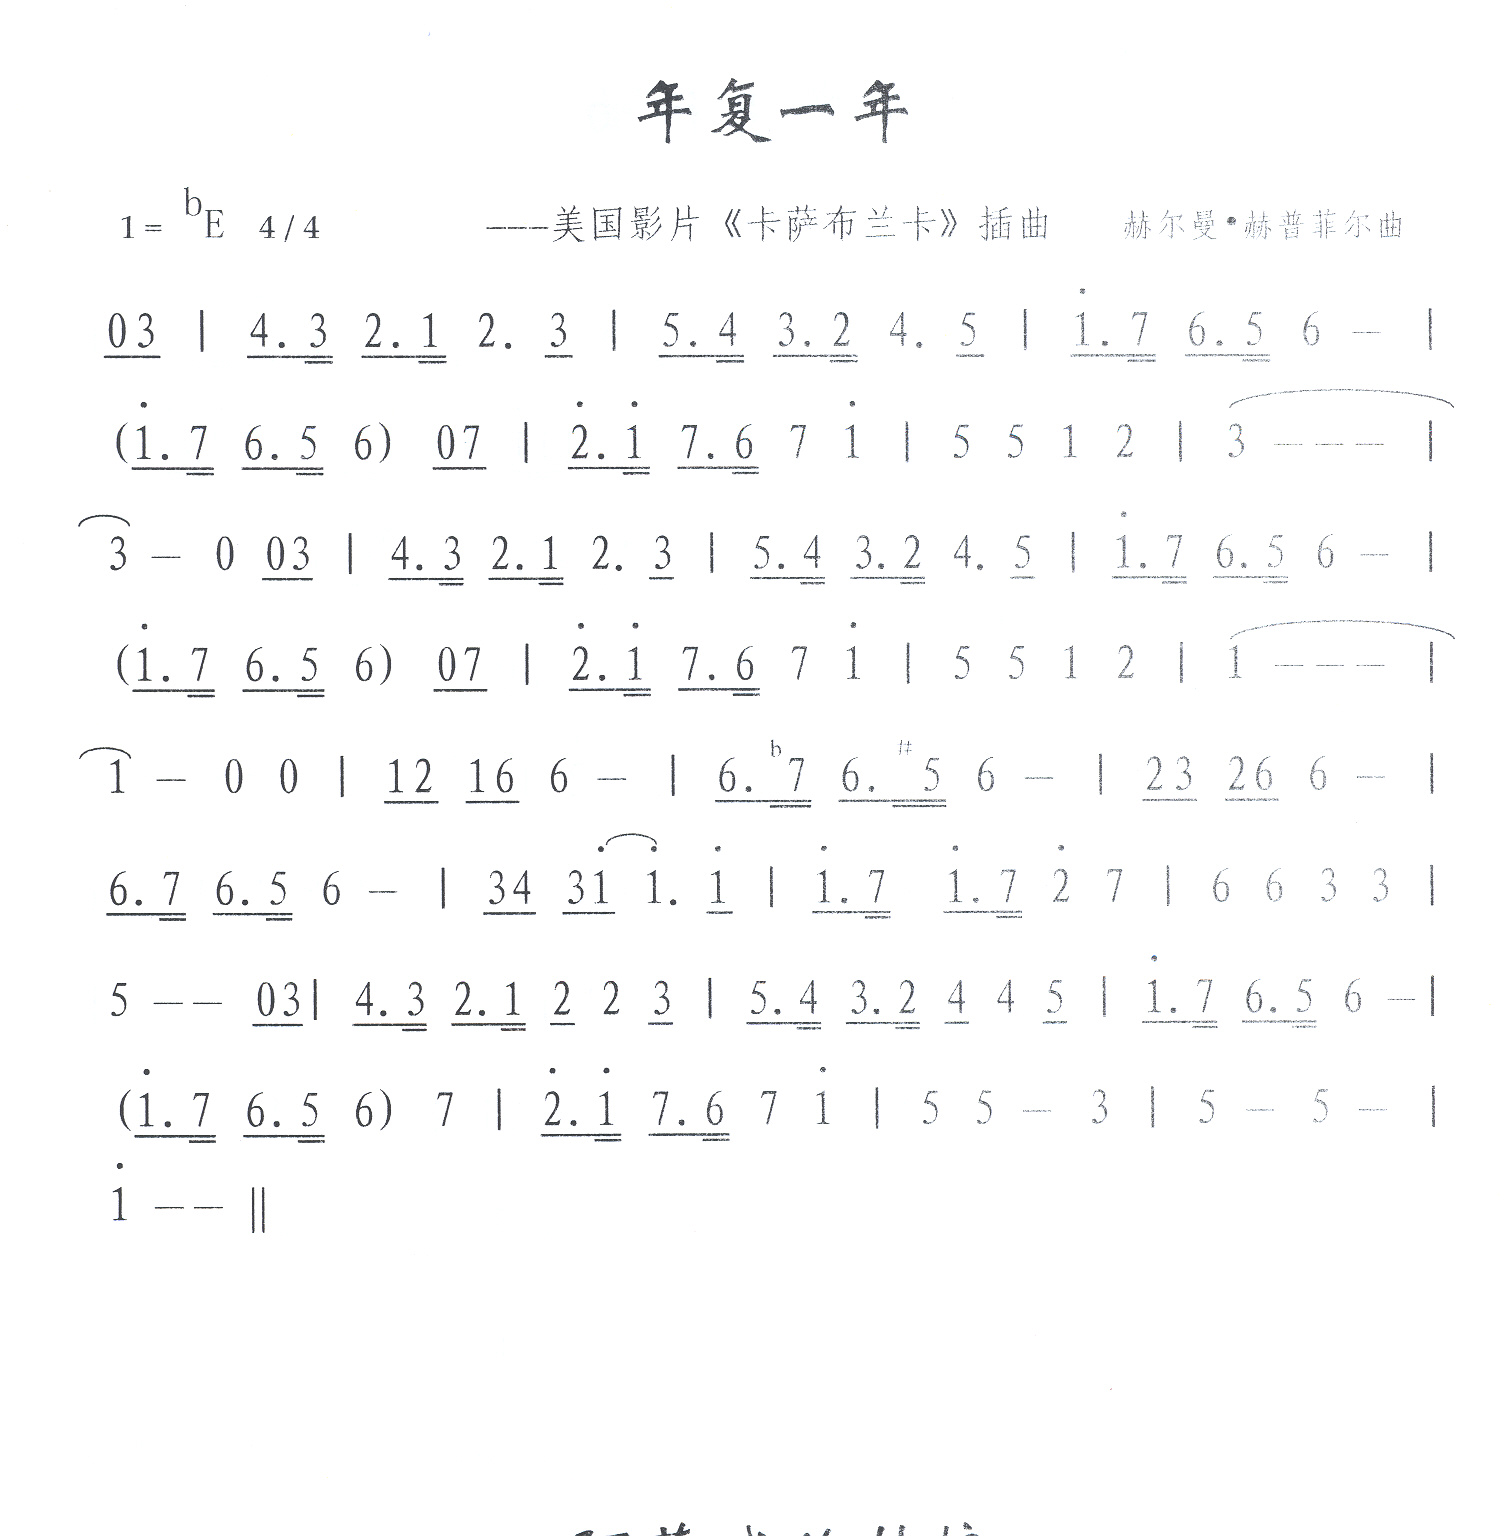 年复一年
1= ᵇE 4/4 ---美国影片《卡萨布兰卡》插曲 赫尔曼•赫普菲尔曲
03 | 4. 3 2. 1 2. 3 | 5. 4 3. 2 4. 5 | 1̇. 7 6. 5 6 — |
(1̇. 7 6. 5 6) 07 | 2̇. 1̇ 7. 6 7 1̇ | 5 5 1 2 | 3 — — — |
3 — 0 03 | 4. 3 2. 1 2. 3 | 5. 4 3. 2 4. 5 | 1̇. 7 6. 5 6 — |
(1̇. 7 6. 5 6) 07 | 2̇. 1̇ 7. 6 7 1̇ | 5 5 1 2 | 1 — — — |
1 — 0 0 | 12 16 6 — | 6. ᵇ7 6. #5 6 — | 23 26 6 — |
6. 7 6. 5 6 — | 34 31̇ 1̇. 1̇ | 1̇. 7 1̇. 7 2̇ 7 | 6 6 3 3 |
5 — — 03 | 4. 3 2. 1 2 2 3 | 5. 4 3. 2 4 4 5 | 1̇. 7 6. 5 6 — |
(1̇. 7 6. 5 6) 7 | 2̇. 1̇ 7. 6 7 1̇ | 5 5 — 3 | 5 — 5 — |
1̇ — — ||